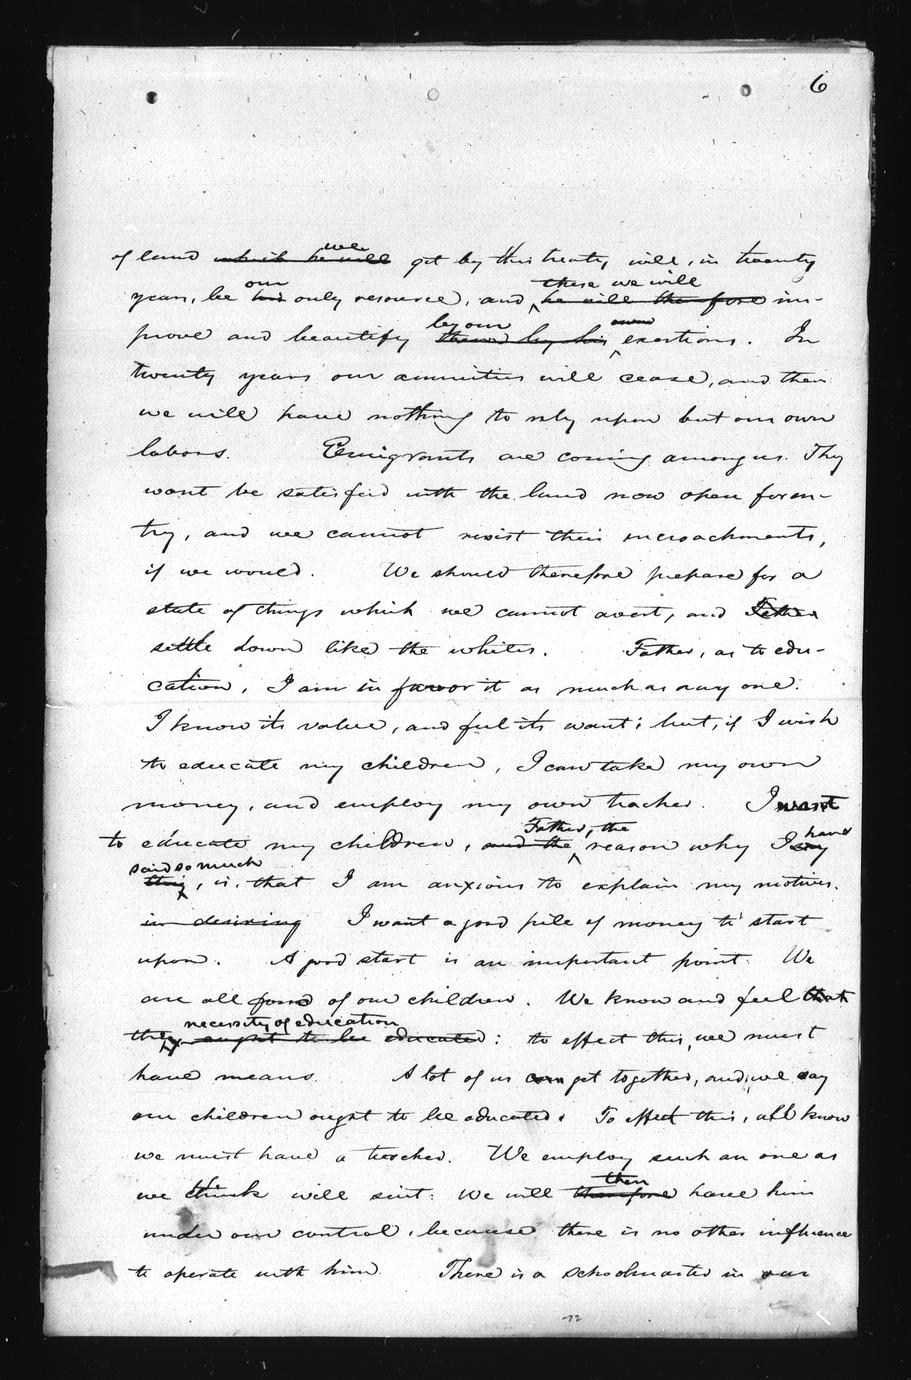 6
of land which he will we get by this treaty will, in twenty
years, be his our only resource, and he will therefore these we will im-
prove and beautify them by his by our own exertions. In
twenty years our annuities will cease, and then
we will have nothing to rely upon but our own
labors. Emigrants are coming among us. They
wont be satisfied with the land now open for en-
try, and we cannot resist their incroachments,
if we would. We should therefore prepare for a
state of things which we cannot avert, and Father
settle down like the whites. Father, as to edu-
cation, I am in favor it as much as any one.
I know its value, and feel its want; but, if I wish
to educate my children, I can take my own
money, and employ my own teacher. I want
to educate my children, and the Father, the reason why I say have
thing said so much, is, that I am anxious to explain my motives.
in desiring I want a good pile of money to start
upon. A good start is an important point. We
are all fond of our children. We know and feel that
they ought to be educated necessity of education: to effect this, we must
have means. A lot of us can get together, and, we say
our children ought to be educated. To effect this, all know
we must have a teacher. We employ such an one as
we think will suit: We will therefore then have him
under our control, because there is no other influence
to operate with him. There is a schoolmaster in our
72